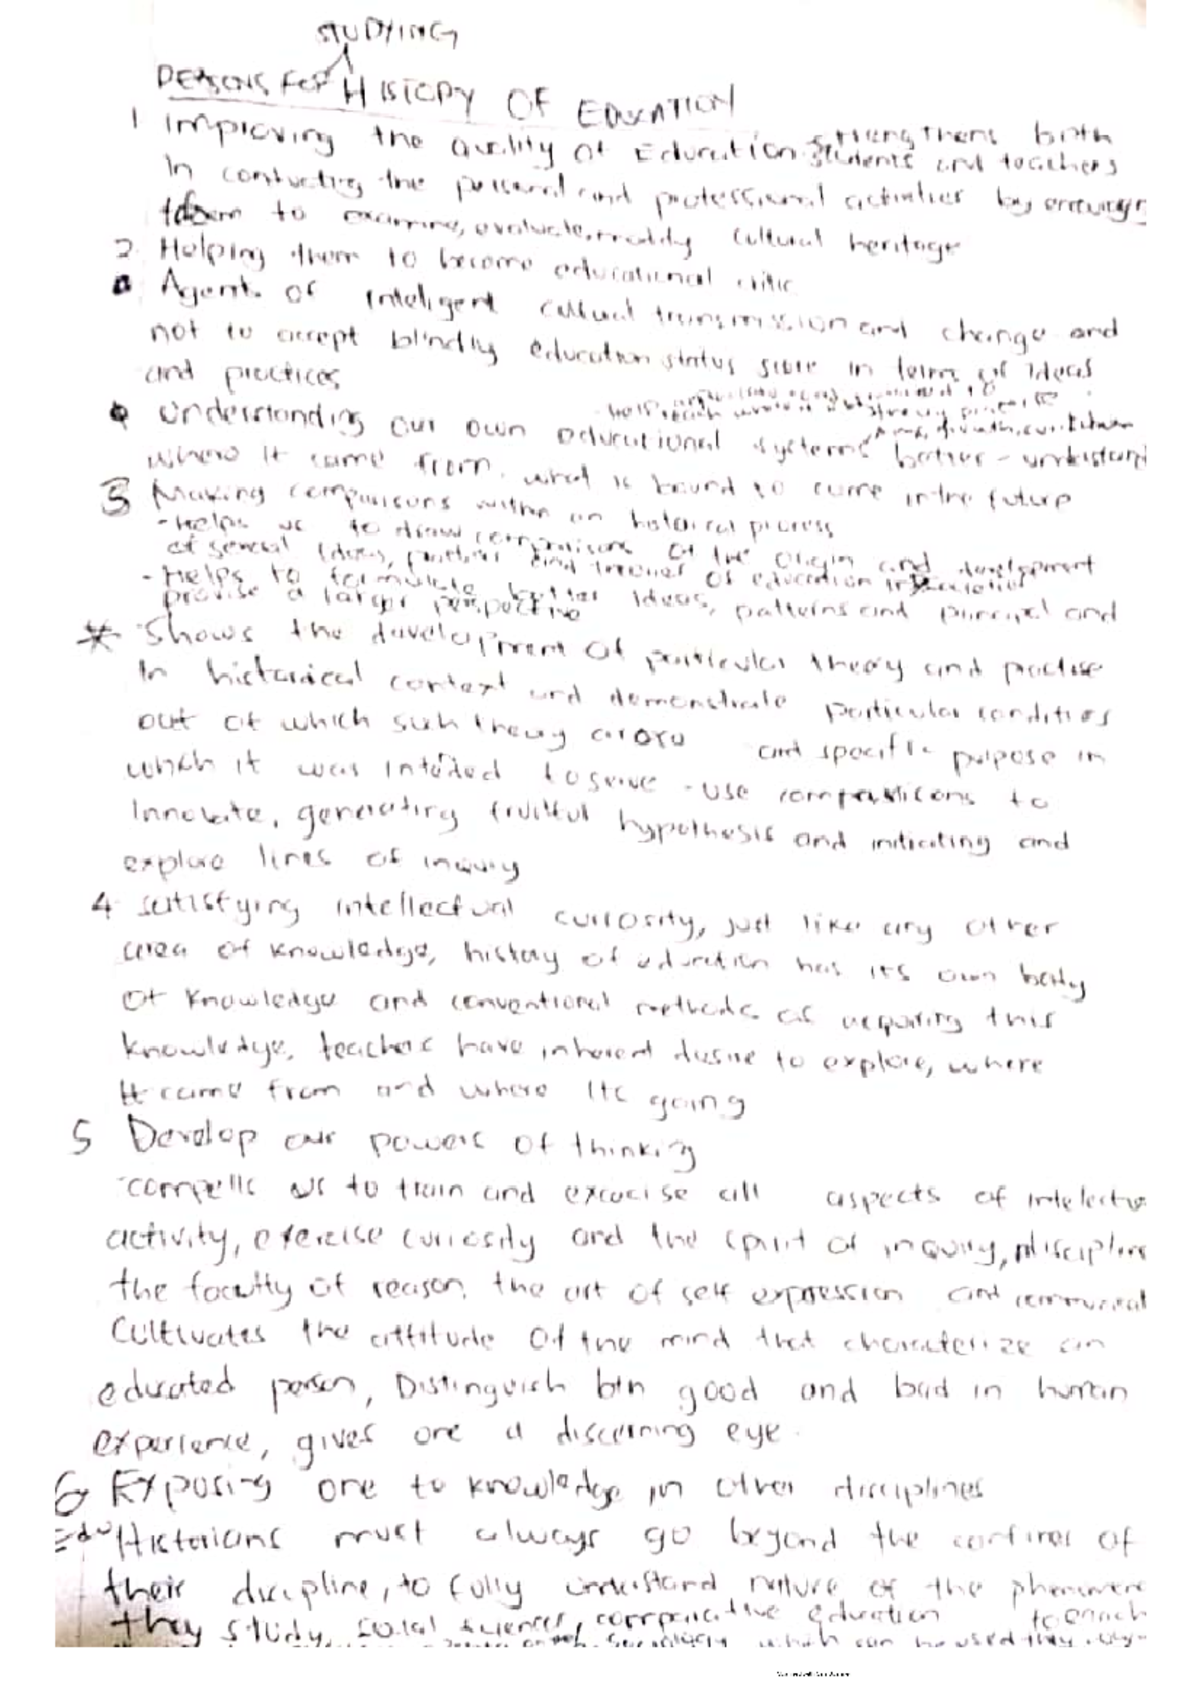 STUDYING
REASONS FOR HISTORY OF EDUCATION
1 Improving the quality of Education strengthens both
students and teachers
In conducting the personal and professional activities by
them to examine, evaluate, modify cultural heritage
2 Helping them to become educational critic
Agent of inteligent cultural transmission and change and
not to accept blindly education status in terms of ideas
and practices
Understanding our own educational systems better - understand
where it came from, what is bound to come in the future
3 Making comparisons within an historical process
- Helps us to draw comparisons of the origin and development
of several ideas, and of education
- Helps to formulate better ideas, patterns and principal and
provise a larger perpective
* Shows the development of particular theory and practise
in historical context and demonstrate particular conditions
out of which such theory arose and specific purpose in
which it was inteded to serve - use comparisons to
Innovate, generating fruitful hypothesis and initiating and
explore lines of inquiry
4 Satistying intellectual curiosity, just like any other
area of knowledge, history of education has its own body
of knowledge and conventional methods of acquiring this
knowledge, teachers have inherent desire to explore, where
it came from and where its going
5 Develop our powers of thinking
- compells us to train and excercise all aspects of
activity, exercise curiosity and the spirit of inquiry,
the faculty of reason, the art of self expression and
Cultivates the attitude of the mind that characterize an
educated person, Distinguish btn good and bad in human
experience, gives one a discerning eye.
6 Exposing one to knowledge in other disciplines
Edu Historians must always go beyond the confines of
their discipline, to fully understand nature of the
they study, social sciences, comparative education to enrich
which can be used